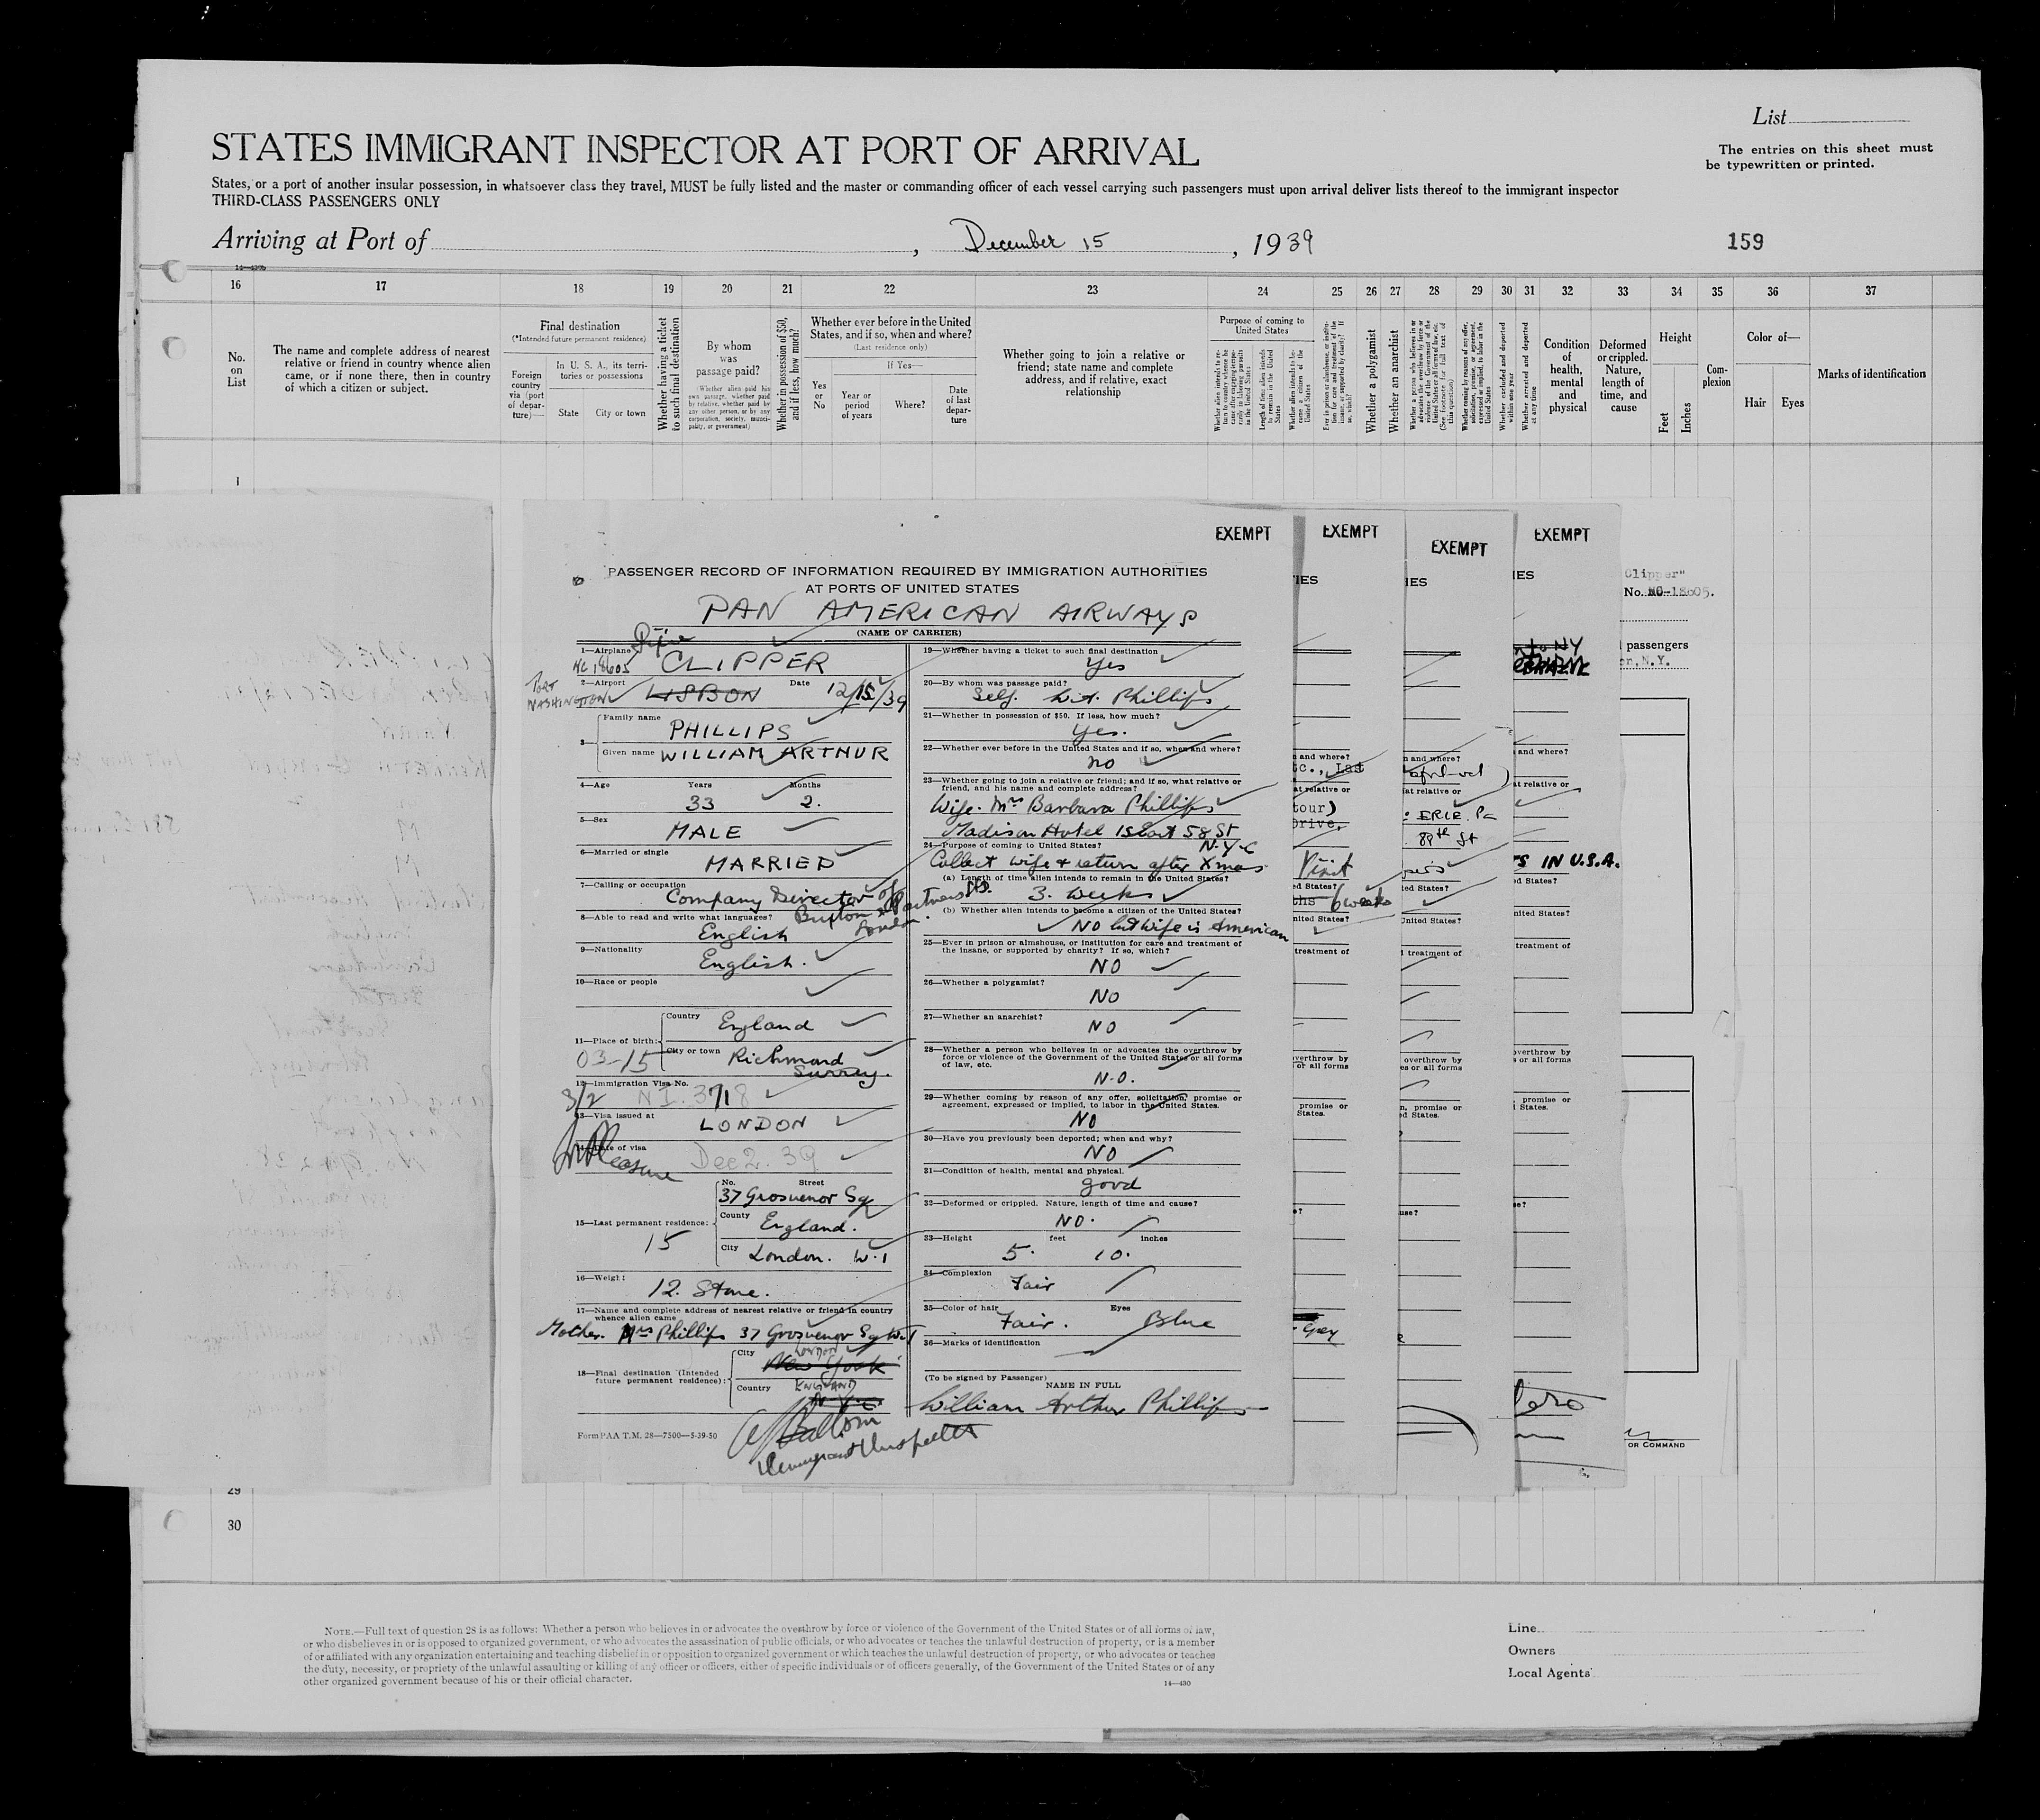 List
STATES IMMIGRANT INSPECTOR AT PORT OF ARRIVAL
The entries on this sheet must
be typewritten or printed.
States, or a port of another insular possession, in whatsoever class they travel, MUST be fully listed and the master or commanding officer of each vessel carrying such passengers must upon arrival deliver lists thereof to the immigrant inspector
THIRD-CLASS PASSENGERS ONLY
Arriving at Port of , December 15 , 1939
159
16 17 18 19 20 21 22 23 24 25 26 27 28 29 30 31 32 33 34 35 36 37
No. on List
The name and complete address of nearest
relative or friend in country whence alien
came, or if none there, then in country
of which a citizen or subject.
Final destination
(*Intended future permanent residence)
Foreign country via (port of departure)—
In U. S. A., its territories or possessions
State City or town
Whether having a ticket to such final destination
By whom was passage paid?
(Whether alien paid his own passage, whether paid by relative, whether paid by any other person, or by any corporation, society, municipality, or government)
Whether in possession of $50, and if less, how much?
Whether ever before in the United
States, and if so, when and where?
(Last residence only)
Yes or No
If Yes—
Year or period of years
Where?
Date of last departure
Whether going to join a relative or
friend; state name and complete
address, and if relative, exact
relationship
Purpose of coming to United States
Length of time alien intends to remain in the United States
Whether a polygamist
Whether an anarchist
Whether excluded and deported within one year
Whether arrested and deported at any time
Condition of health, mental and physical
Deformed or crippled. Nature, length of time, and cause
Height
Feet Inches
Complexion
Color of—
Hair Eyes
Marks of identification
1
EXEMPT
EXEMPT
EXEMPT
EXEMPT
PASSENGER RECORD OF INFORMATION REQUIRED BY IMMIGRATION AUTHORITIES
AT PORTS OF UNITED STATES
PAN AMERICAN AIRWAYS
(NAME OF CARRIER)
1—Airplane Dixie
NC 18605 CLIPPER
2—Airport LISBON Date 12/15/39
PORT WASHINGTON
3— Family name PHILLIPS
Given name WILLIAM ARTHUR
4—Age Years Months
33 2.
5—Sex
MALE
6—Married or single
MARRIED
7—Calling or occupation
Company Director of
London.
8—Able to read and write what languages?
English
9—Nationality
English.
10—Race or people
11—Place of birth: Country England
City or town Richmond
Surrey.
03-15
12—Immigration Visa No.
3/2 NI. 3718
13—Visa issued at
LONDON
14—Date of visa
Dec 2. 39
Pleasure
15—Last permanent residence:
No. Street
37 Grosvenor Sq
County England.
City London. W.1
15
16—Weight
12. Stone.
17—Name and complete address of nearest relative or friend in country
whence alien came
Mother. Mrs Phillips 37 Grosvenor Sq W.1
18—Final destination (Intended
future permanent residence):
City LONDON
New York
Country ENGLAND
N.Y.C.
Form PAA T.M. 28—7500—5-39-50
Immigrant Inspector
19—Whether having a ticket to such final destination
Yes
20—By whom was passage paid?
Self. W.A. Phillips
21—Whether in possession of $50. If less, how much?
Yes.
22—Whether ever before in the United States and if so, when and where?
no
23—Whether going to join a relative or friend; and if so, what relative or
friend, and his name and complete address?
Wife. Mrs Barbara Phillips
Madison Hotel 15 East 58 St
N.Y.C
24—Purpose of coming to United States?
Collect wife & return after Xmas
(a) Length of time alien intends to remain in the United States?
3. weeks
(b) Whether alien intends to become a citizen of the United States?
NO but wife is American
25—Ever in prison or almshouse, or institution for care and treatment of
the insane, or supported by charity? If so, which?
NO
26—Whether a polygamist?
NO
27—Whether an anarchist?
NO
28—Whether a person who believes in or advocates the overthrow by
force or violence of the Government of the United States or all forms
of law, etc.
N.O.
29—Whether coming by reason of any offer, solicitation, promise or
agreement, expressed or implied, to labor in the United States.
NO
30—Have you previously been deported; when and why?
NO
31—Condition of health, mental and physical.
good
32—Deformed or crippled. Nature, length of time and cause?
NO.
33—Height feet inches
5. 10.
34—Complexion
Fair
35—Color of hair Eyes
Fair. Blue
36—Marks of identification
(To be signed by Passenger)
NAME IN FULL
William Arthur Phillips
Visit
6 weeks
Grey
ERIE. Pa
89th St
IN U.S.A.
Clipper"
No. NC-18605.
passengers
N.Y.
OR COMMAND
29
30
NOTE.—Full text of question 28 is as follows: Whether a person who believes in or advocates the overthrow by force or violence of the Government of the United States or of all forms of law,
or who disbelieves in or is opposed to organized government, or who advocates the assassination of public officials, or who advocates or teaches the unlawful destruction of property, or is a member
of or affiliated with any organization entertaining and teaching disbelief in or opposition to organized government or which teaches the unlawful destruction of property, or who advocates or teaches
the duty, necessity, or propriety of the unlawful assaulting or killing of any officer or officers, either of specific individuals or of officers generally, of the Government of the United States or of any
other organized government because of his or their official character.
14—430
Line
Owners
Local Agents